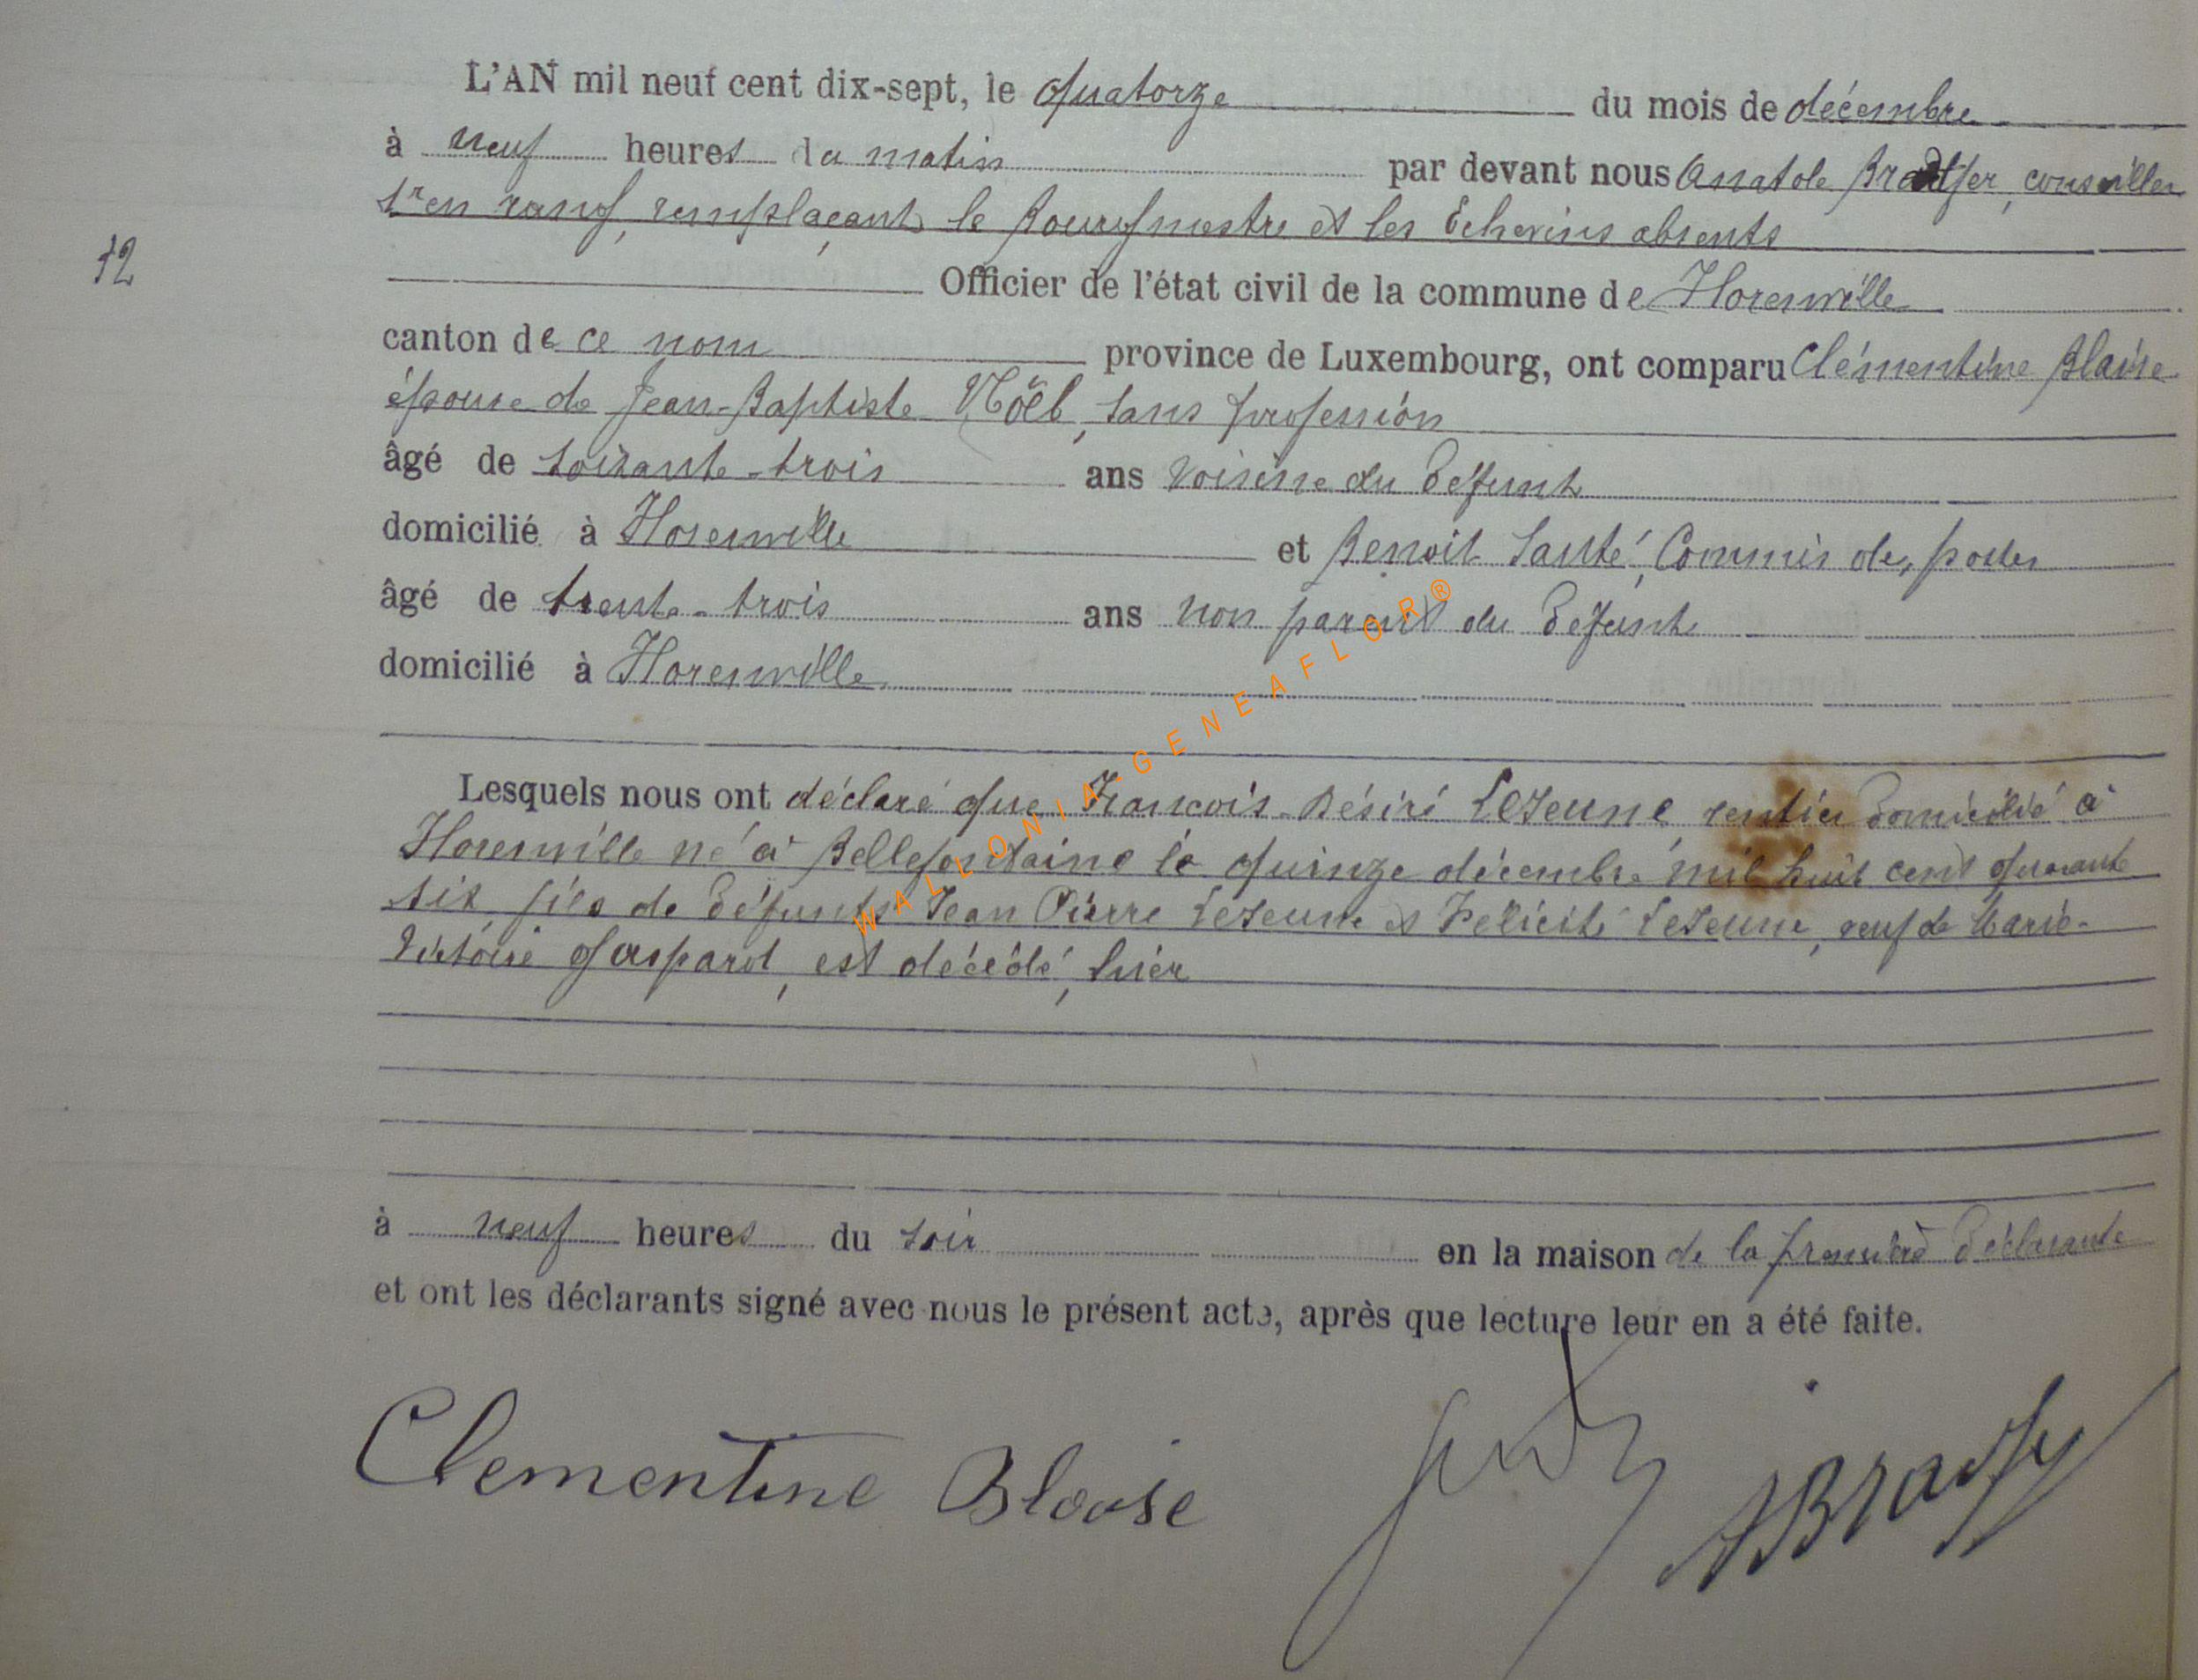 L'AN mil neuf cent dix-sept, le quatorze du mois de décembre
à neuf heures du matin par devant nous Anatole conseiller
1er en rang, remplaçant le Bourgmestre et les Echevins absents
12
Officier de l'état civil de la commune de Florenville
canton de ce nom province de Luxembourg, ont comparu Clémentine Blaise
épouse de Jean-Baptiste Noël, sans profession
âgé de soixante-trois ans voisine du défunt
domicilié à Florenville et Benoit Santé, Commis des postes
âgé de trente-trois ans non parent du défunt
domicilié à Florenville
Lesquels nous ont déclaré que François-Désiré LeJeune rentier domicilié à
Florenville né à Bellefontaine le quinze décembre mil huit cent quarante
six fils de défunts Jean Pierre LeJeune et Félicité LeJeune, veuf de Marie-
Victoire Gaspard, est décédé, hier
à neuf heures du soir en la maison de la première déclarante
et ont les déclarants signé avec nous le présent acte, après que lecture leur en a été faite.
Clementine Blaise
WALLONIA-GENEAFLOR®